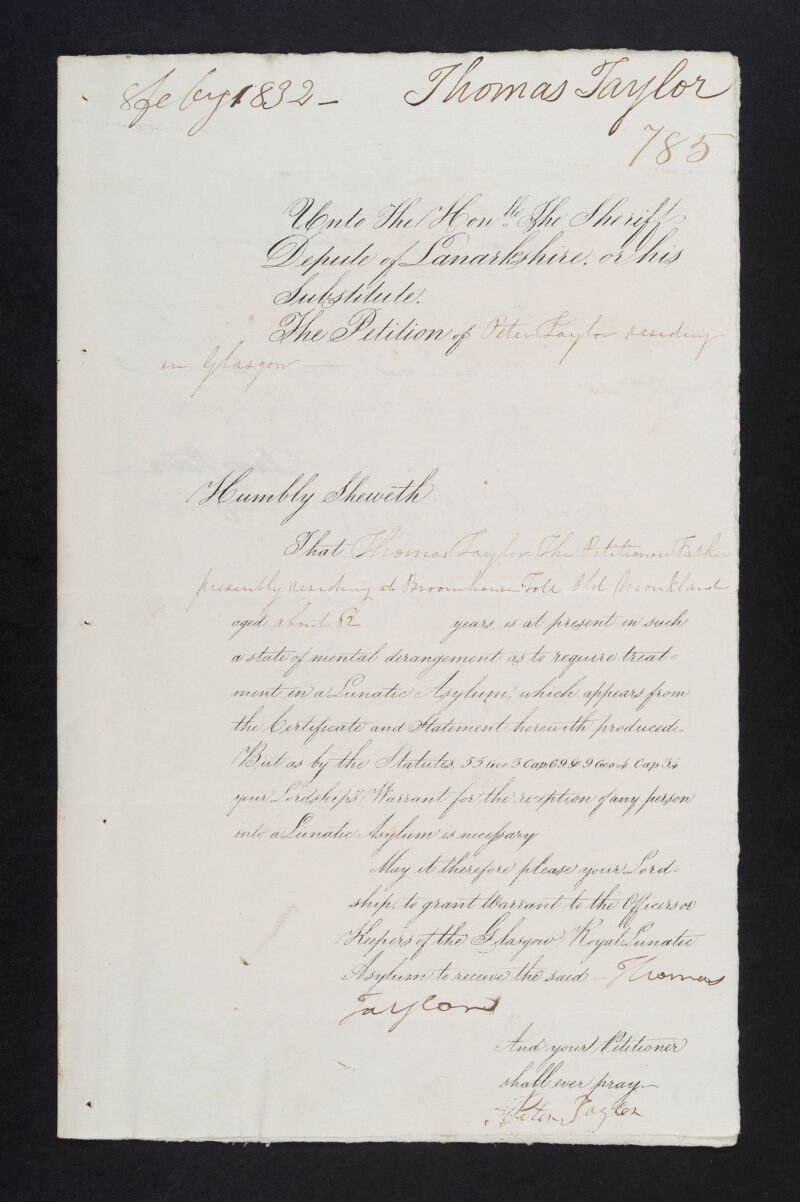 8 feby 1832 –
Thomas Taylor
785
Unto The Honble The Sheriff
Depute of Lanarkshire, or his
Substitute.
The Petition of Peter Taylor residing
in Glasgow —
Humbly Sheweth
That Thomas Taylor The Petitioners Father
presently residing at Broomhouse Toll Old Monkland
aged about 62 years, is at present in such
a state of mental derangement as to require treat=
ment in a Lunatic Asylum, which appears from
the Certificate and Statement herewith produced–
But as by the Statutes, 55 Geo 3 Cap 69 & 9 Geo 4 Cap 34
your Lordships Warrant for the reception of any person
into a Lunatic Asylum is necessary
May it therefore please your Lord=
ship, to grant Warrant to the Officers or
Keepers of the Glasgow Royal Lunatic
Asylum to receive the said – Thomas
Taylor
And your Petitioner
shall ever pray.–
Peter Taylor